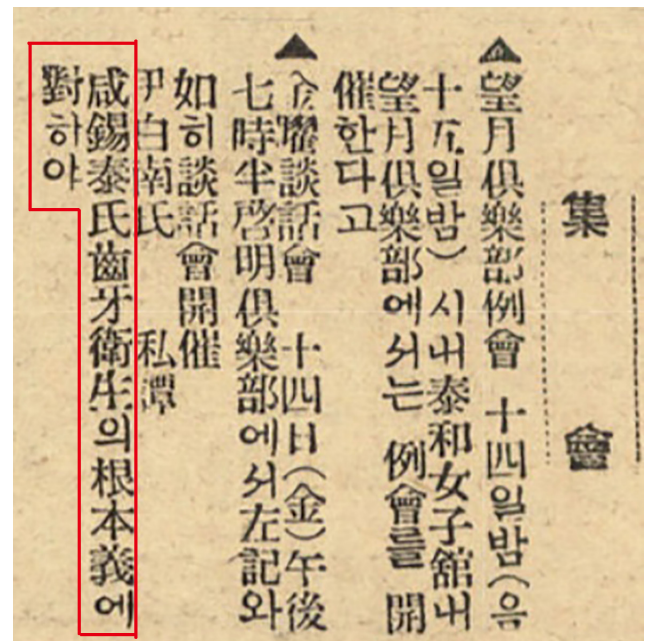 集會
▲望月俱樂部例會 十四일밤(음
十五일밤) 시내泰和女子舘내
望月俱樂部에서는 例會를 開
催한다고
▲金曜談話會 十四日(金)午後
七時半啓明俱樂部에서左記와
如히談話會開催
尹白南氏 私譚
咸錫泰氏齒牙衛生의根本義에
對하야